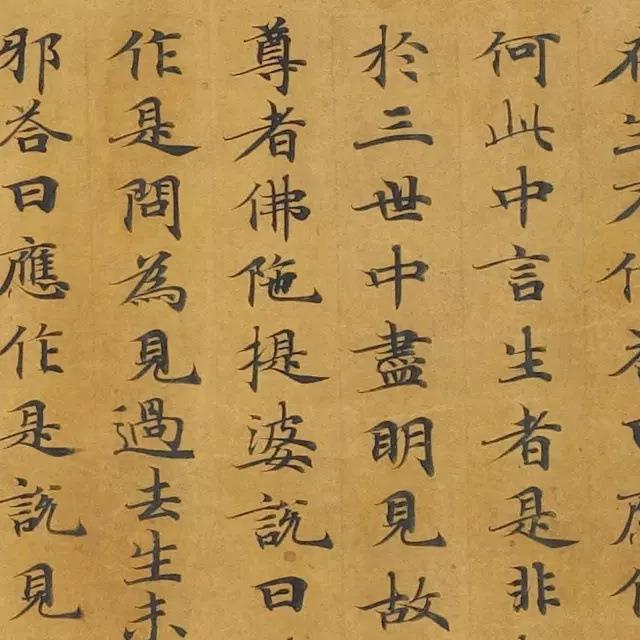 何此中言生者是非
於三世中盡眀見故
尊者佛陁提婆說曰
作是問為見過去生未
邪荅曰應作是說見